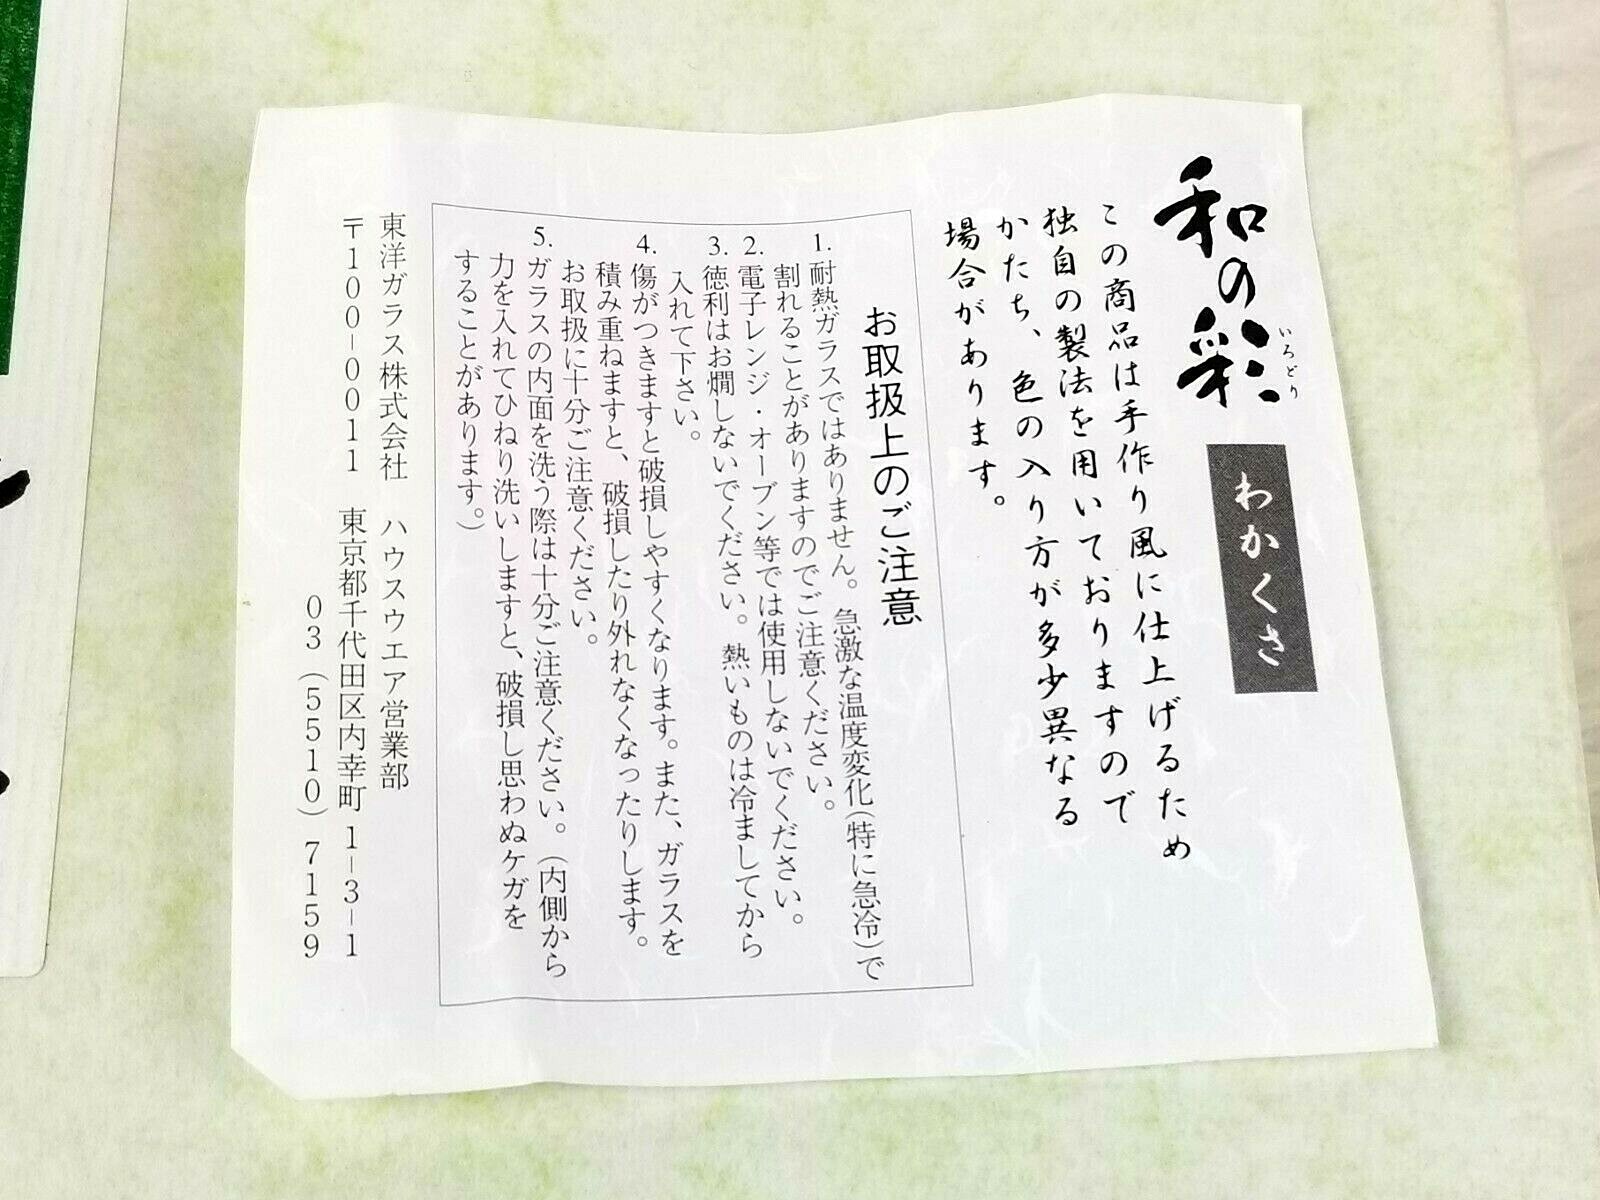 和の彩
いろどり
わかくさ
この商品は手作り風に仕上げるため
独自の製法を用いておりますので
かたち、色の入り方が多少異なる
場合があります。
お取扱上のご注意
1. 耐熱ガラスではありません。急激な温度変化(特に急冷)で
割れることがありますのでご注意ください。
2. 電子レンジ・オーブン等では使用しないでください。
3. 徳利はお燗しないでください。熱いものは冷ましてから
入れて下さい。
4. 傷がつきますと破損しやすくなります。また、ガラスを
積み重ねますと、破損したり外れなくなったりします。
お取扱に十分ご注意ください。
5. ガラスの内面を洗う際は十分ご注意ください。(内側から
力を入れてひねり洗いしますと、破損し思わぬケガを
することがあります。)
東洋ガラス株式会社 ハウスウエア営業部
〒100-0011 東京都千代田区内幸町1-3-1
03(5510)7159